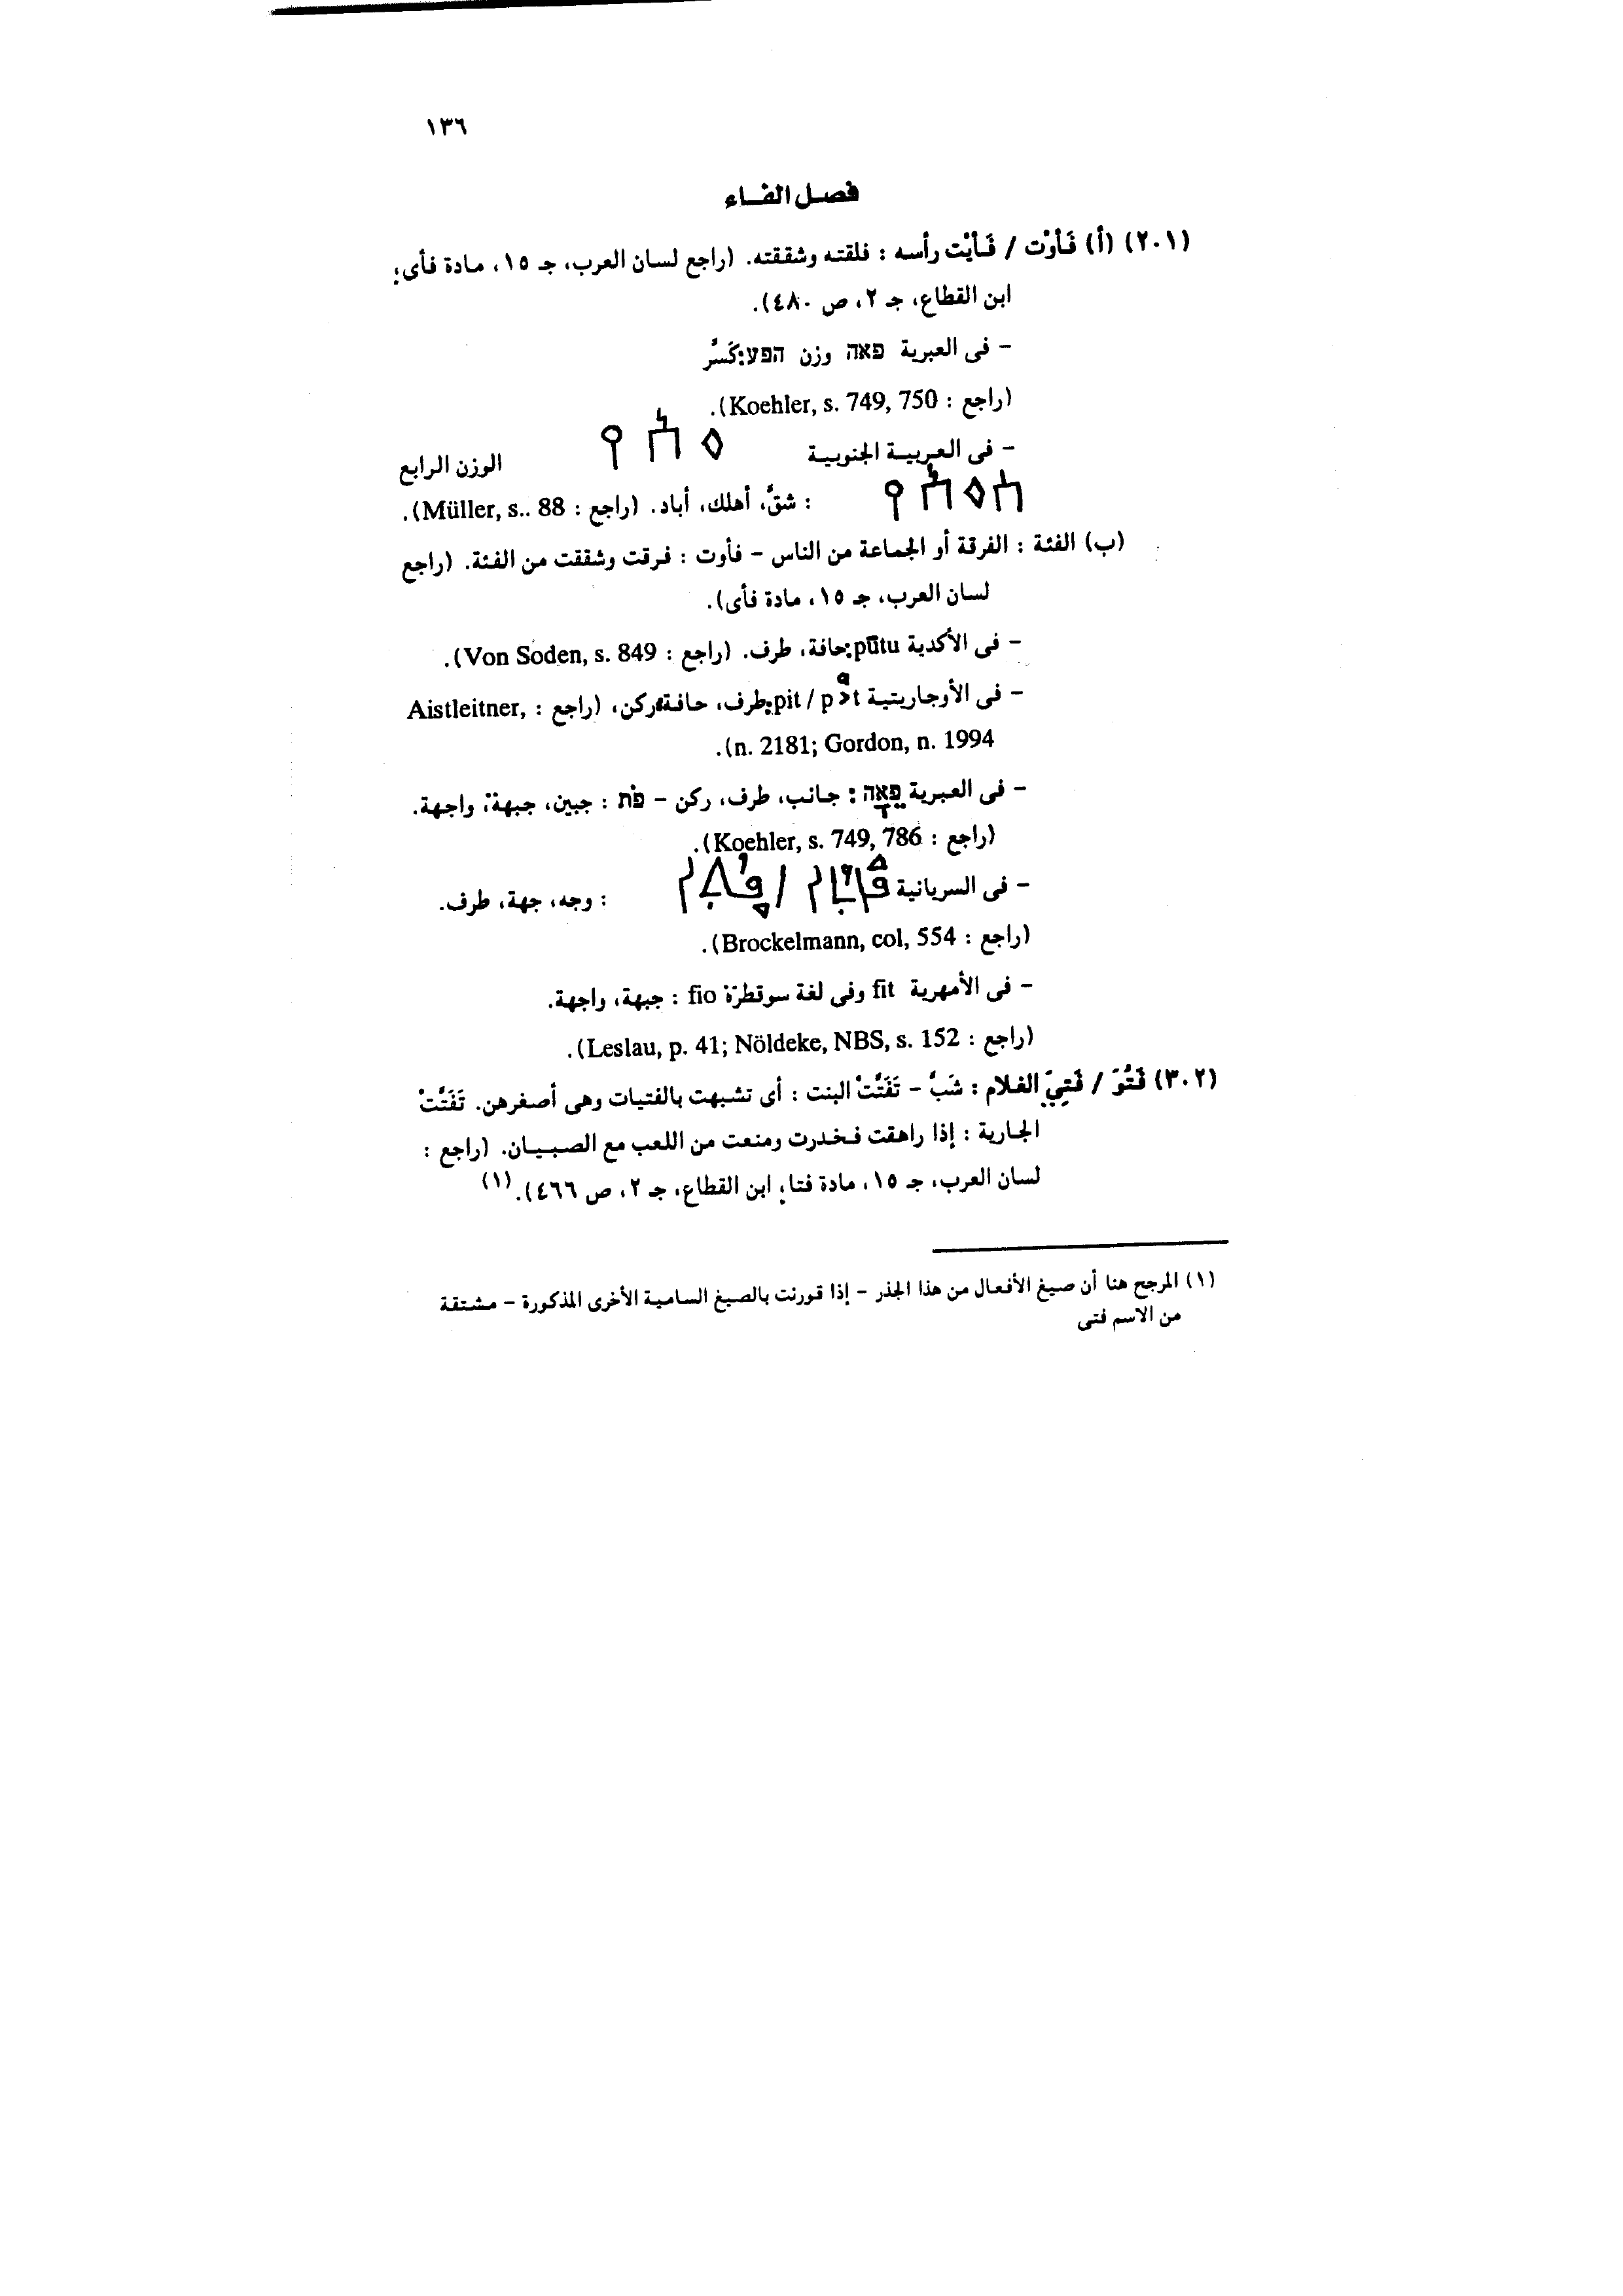 ١٣٦
فصل الفاء
(٢٠١) (أ) فَأوْت / فَأيْت رأسه : فلقته وشققته. (راجع لسان العرب، جـ ١٥، مادة فأى؛
ابن القطاع، جـ ٢، ص ٤٨٠).
- فى العبرية פאה وزن הפע: كَسَّر
(راجع : Koehler, s. 749, 750).
- فى العربية الجنوبية الوزن الرابع
: شقَّ، أهلك، أباد. (راجع : Müller, s.. 88).
(ب) الفئة : الفرقة أو الجماعة من الناس - فأوت : فرقت وشققت من الفئة. (راجع
لسان العرب، جـ ١٥، مادة فأى).
- فى الأكدية pūtu: حافة، طرف. (راجع : Von Soden, s. 849).
- فى الأوجاريتية pit / p: طرف، حافة، ركن، (راجع : Aistleitner,
n. 2181; Gordon, n. 1994).
- فى العبرية פֵּאָה : جانب، طرف، ركن - פֹּת : جبين، جبهة، واجهة.
(راجع : Koehler, s. 749, 786).
- فى السريانية : وجه، جهة، طرف.
(راجع : Brockelmann, col, 554).
- فى الأمهرية fit وفى لغة سوقطرة fio : جبهة، واجهة.
(راجع : Leslau, p. 41; Nöldeke, NBS, s. 152).
(٣٠٢) فَتُوَ / فَتِيَ الغلام : شَبَّ - تَفَتَّتْ البنت : أى تشبهت بالفتيات وهى أصغرهن. تَفَتَّتْ
الجارية : إذا راهقت فخدرت ومنعت من اللعب مع الصبيان. (راجع :
لسان العرب، جـ ١٥، مادة فتا؛ ابن القطاع، جـ ٢، ص ٤٦٦).(١)
(١) المرجح هنا أن صيغ الأفعال من هذا الجذر - إذا قورنت بالصيغ السامية الأخرى المذكورة - مشتقة
من الاسم فتى